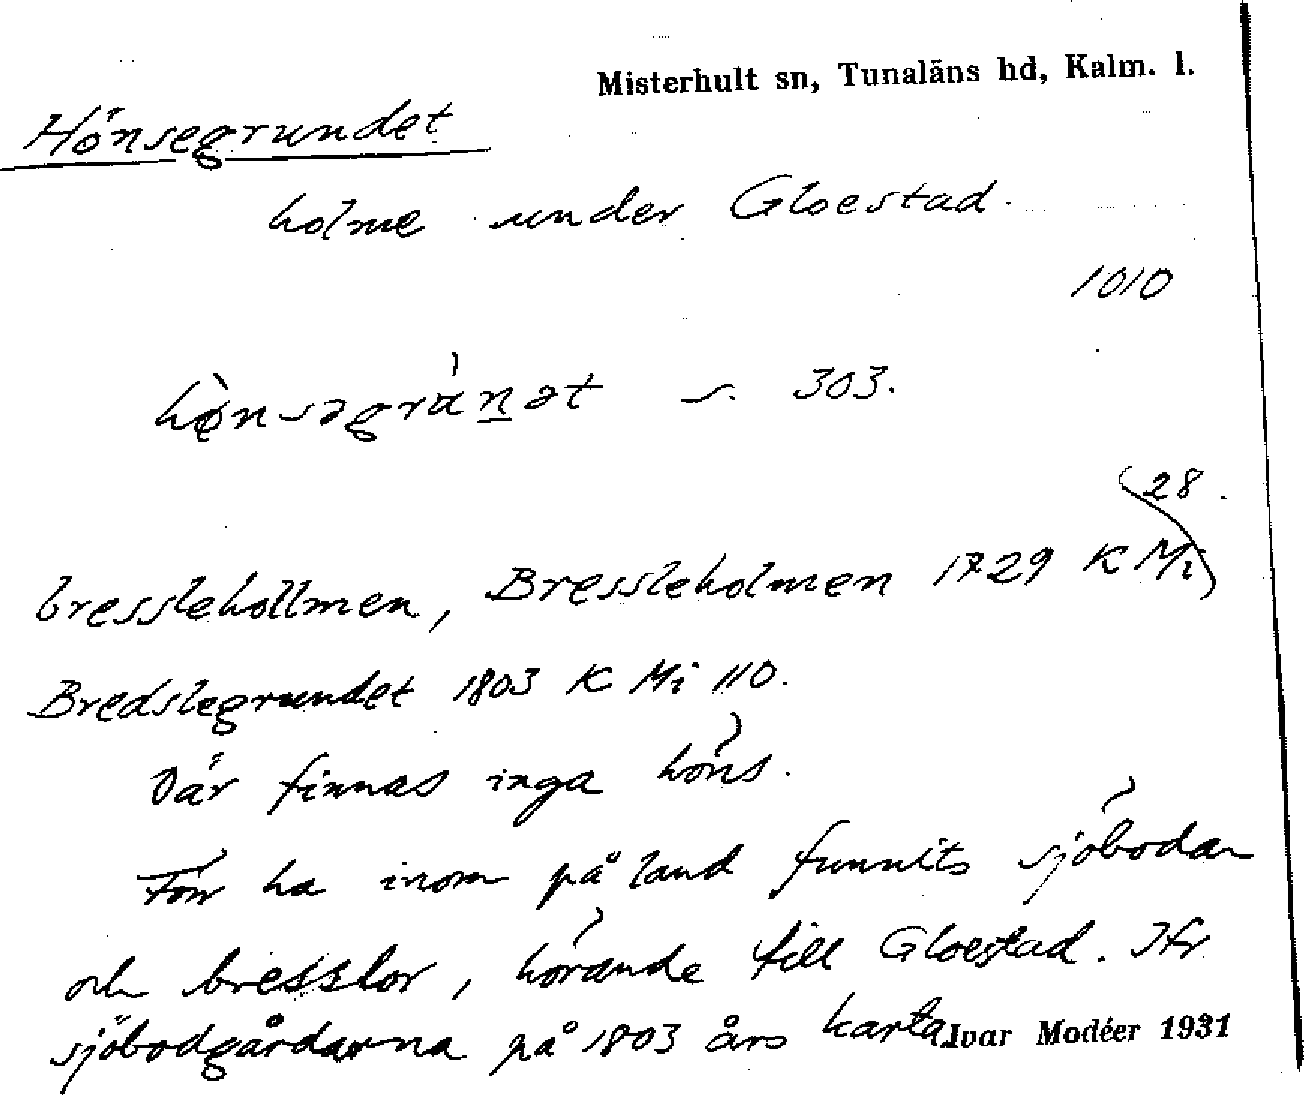 Misterhult sn, Tunaläns hd, Kalm. l.
Hönsegrundet
holme under Gloestad.
1010
hø̀nsəgrùn̲ət s. 303.
bresslehollmen, Bressleholmen 1729 K Mi 28.
Bredslegrundet 1803 K Mi 110.
Där finnas inga höns.
Förr ha inom på land funnits sjöbodar
och bresslor, hörande till Gloestad. Jfr
sjöbodgårdarna på 1803 års karta
Ivar Modéer 1931